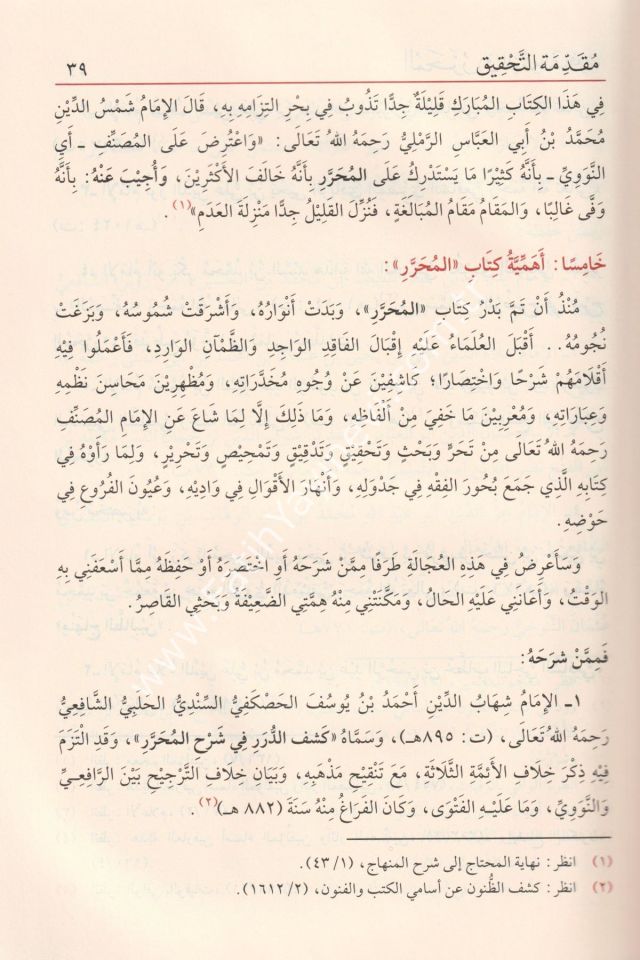 مُقَدِّمَة التَّحْقِيق
٣٩
فِي هَذَا الكِتَابِ المُبَارَكِ قَلِيلَةٌ جِدًّا تَذُوبُ فِي بِحْرِ التِزَامِهِ بِهِ، قَالَ الإِمَامُ شَمْسُ الدِّيْنِ
مُحَمَّدُ بْنُ أَبِي العَبَّاسِ الرَّمْلِيُّ رَحِمَهُ اللهُ تَعَالَى: «وَاعْتُرِضَ عَلَى المُصَنِّفِ ـ أَيِ
النَّوَوِيِّ ـ بِأَنَّهُ كَثِيرًا مَا يَسْتَدْرِكُ عَلَى المُحَرَّرِ بِأَنَّهُ خَالَفَ الأَكْثَرِيْنَ، وَأُجِيْبَ عَنْهُ: بِأَنَّهُ
وَفَّى غَالِبًا، وَالمَقَامُ مَقَامُ المُبَالَغَةِ، فَنُزِّلَ القَلِيْلُ جِدًّا مَنْزِلَةَ العَدَمِ»(١).
خَامِسًا: أَهَمِّيَّةُ كِتَابِ «المُحَرَّرِ»:
مُنْذُ أَنْ تَمَّ بَدْرُ كِتَابِ «المُحَرَّرِ»، وَبَدَتْ أَنْوَارُهُ، وَأَشْرَقَتْ شُمُوسُهُ، وَبَزَغَتْ
نُجُومُهُ.. أَقْبَلَ العُلَمَاءُ عَلَيْهِ إِقْبَالَ الفَاقِدِ الوَاجِدِ وَالظَّمْآنِ الوَارِدِ، فَأَعْمَلُوا فِيْهِ
أَقْلَامَهُمْ شَرْحًا وَاخْتِصَارًا؛ كَاشِفِيْنَ عَنْ وُجُوهِ مُخَدَّرَاتِهِ، وَمُظْهِرِيْنَ مَحَاسِنَ نَظْمِهِ
وَعِبَارَاتِهِ، وَمُعْرِبِيْنَ مَا خَفِيَ مِنْ أَلْفَاظِهِ، وَمَا ذَلِكَ إِلَّا لِمَا شَاعَ عَنِ الإِمَامِ المُصَنِّفِ
رَحِمَهُ اللهُ تَعَالَى مِنْ تَحَرٍّ وَبَحْثٍ وَتَحْقِيْقٍ وَتَدْقِيْقٍ وَتَمْحِيْصٍ وَتَحْرِيْرٍ، وَلِمَا رَأَوْهُ فِي
كِتَابِهِ الَّذِي جَمَعَ بُحُورَ الفِقْهِ فِي جَدْوَلِهِ، وَأَنْهَارَ الأَقْوَالِ فِي وَادِيْهِ، وَعُيُونَ الفُرُوعِ فِي
حَوْضِهِ.
وَسَأَعْرِضُ فِي هَذِهِ العُجَالَةِ طَرَفًا مِمَّنْ شَرَحَهُ أَوِ اخْتَصَرَهُ أَوْ حَفِظَهُ مِمَّا أَسْعَفَنِي بِهِ
الوَقْتُ، وَأَعَانَنِي عَلَيْهِ الحَالُ، وَمَكَّنَتْنِي مِنْهُ هِمَّتِي الضَّعِيْفَةُ وَبَحْثِي القَاصِرُ.
فَمِمَّنْ شَرَحَهُ:
١ـ الإِمَامُ شِهَابُ الدِّيْنِ أَحْمَدُ بْنُ يُوسُفَ الحَصْكَفِيُّ السِّنْدِيُّ الحَلَبِيُّ الشَّافِعِيُّ
رَحِمَهُ اللهُ تَعَالَى، (ت: ٨٩٥هـ)، وَسَمَّاهُ «كَشْفَ الدُّرَرِ فِي شَرْحِ المُحَرَّرِ»، وَقَدِ التَزَمَ
فِيْهِ ذِكْرَ خِلَافِ الأَئِمَّةِ الثَّلَاثَةِ، مَعَ تَنْقِيْحِ مَذْهَبِهِ، وَبَيَانِ خِلَافِ التَّرْجِيْحِ بَيْنَ الرَّافِعِيِّ
وَالنَّوَوِيِّ، وَمَا عَلَيْهِ الفَتْوَى، وَكَانَ الفَرَاغُ مِنْهُ سَنَةَ (٨٨٢ هـ)(٢).
(١) انظر: نهاية المحتاج إلى شرح المنهاج، (٤٣/١).
(٢) انظر: كشف الظُّنون عن أسامي الكتب والفنون، (١٦١٢/٢).